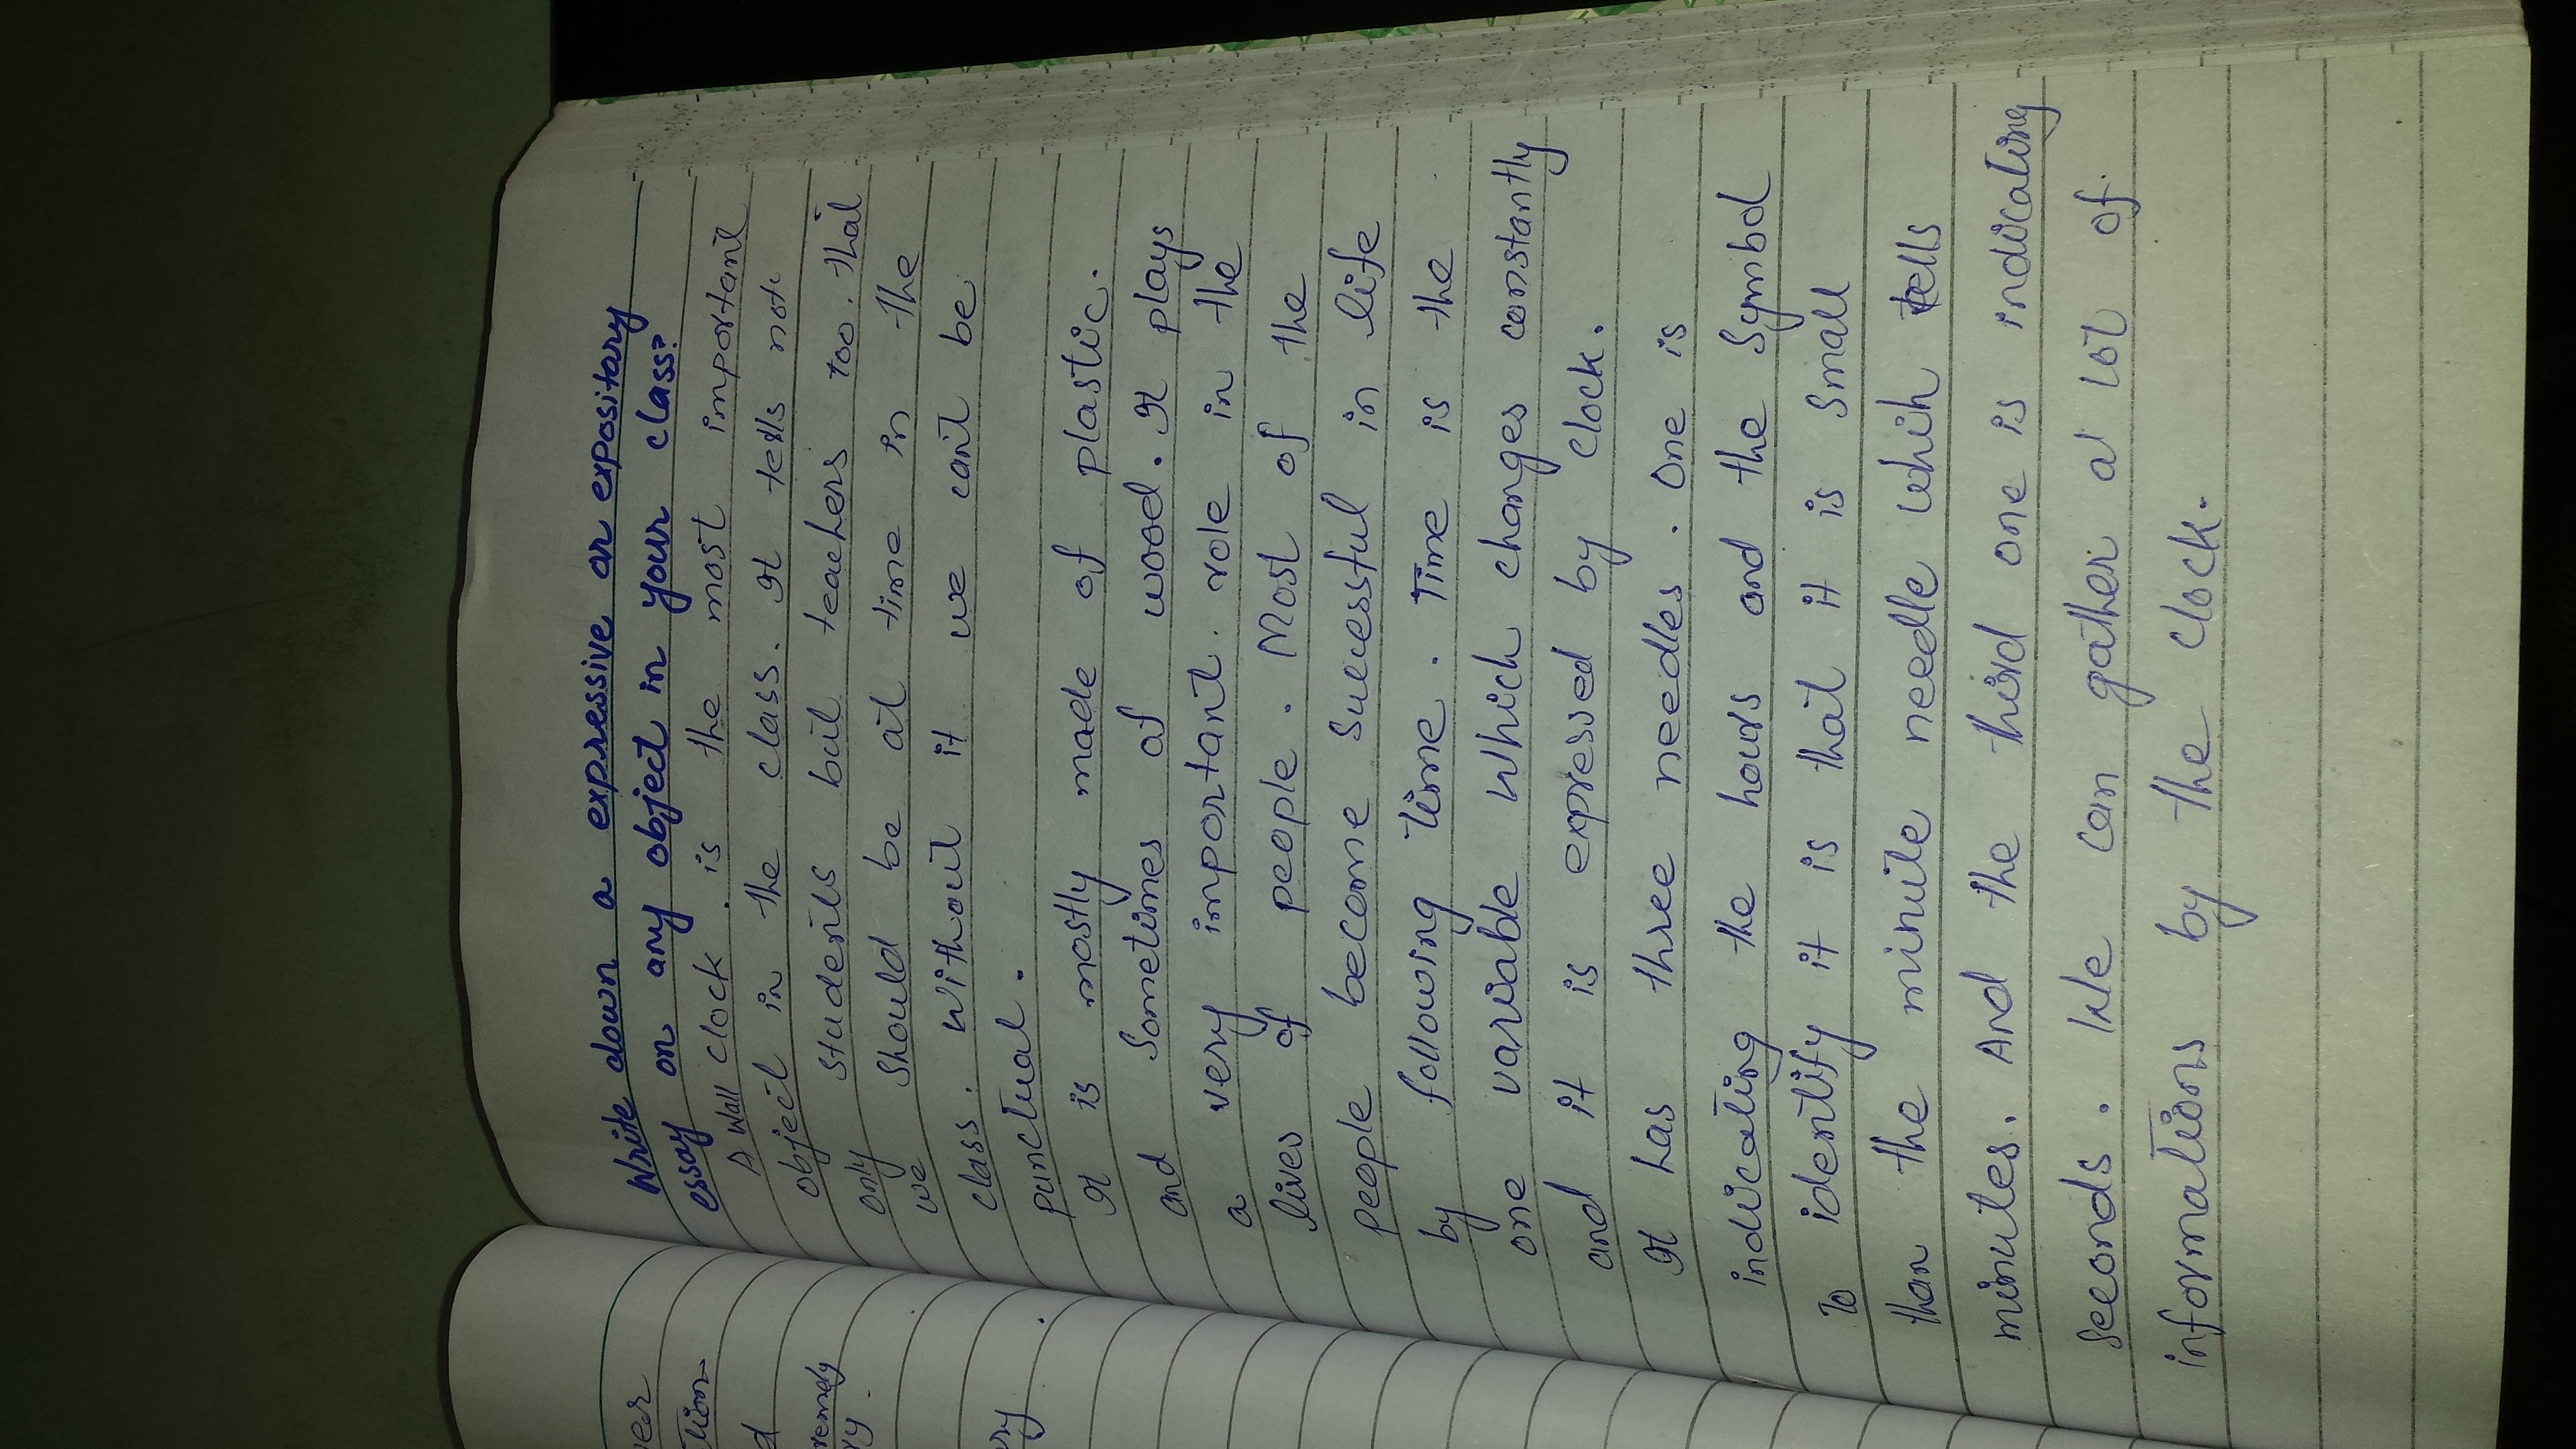 Write down a expressive or expositary
essay on any object in your class?
A Wall Clock . is the most important
object in the class. It tells not
only students but teachers too. that
we should be at time in the
class. Without it we can't be
punctual.
It is mostly made of plastic.
and Sometimes of wood. It plays
a very important. role in the
lives of people. Most of the
people become Successful in life
by following time. Time is the
one variable Which changes constantly
and it is expressed by Clock.
It has three needles. One is
indicating the hours and the Symbol
To identify it is that it is Small
than the minute needle whih tells
minutes. And the third one is indicating
Seconds. We can gather a lot of
informations by the Clock.
tion
d
remely
ry.